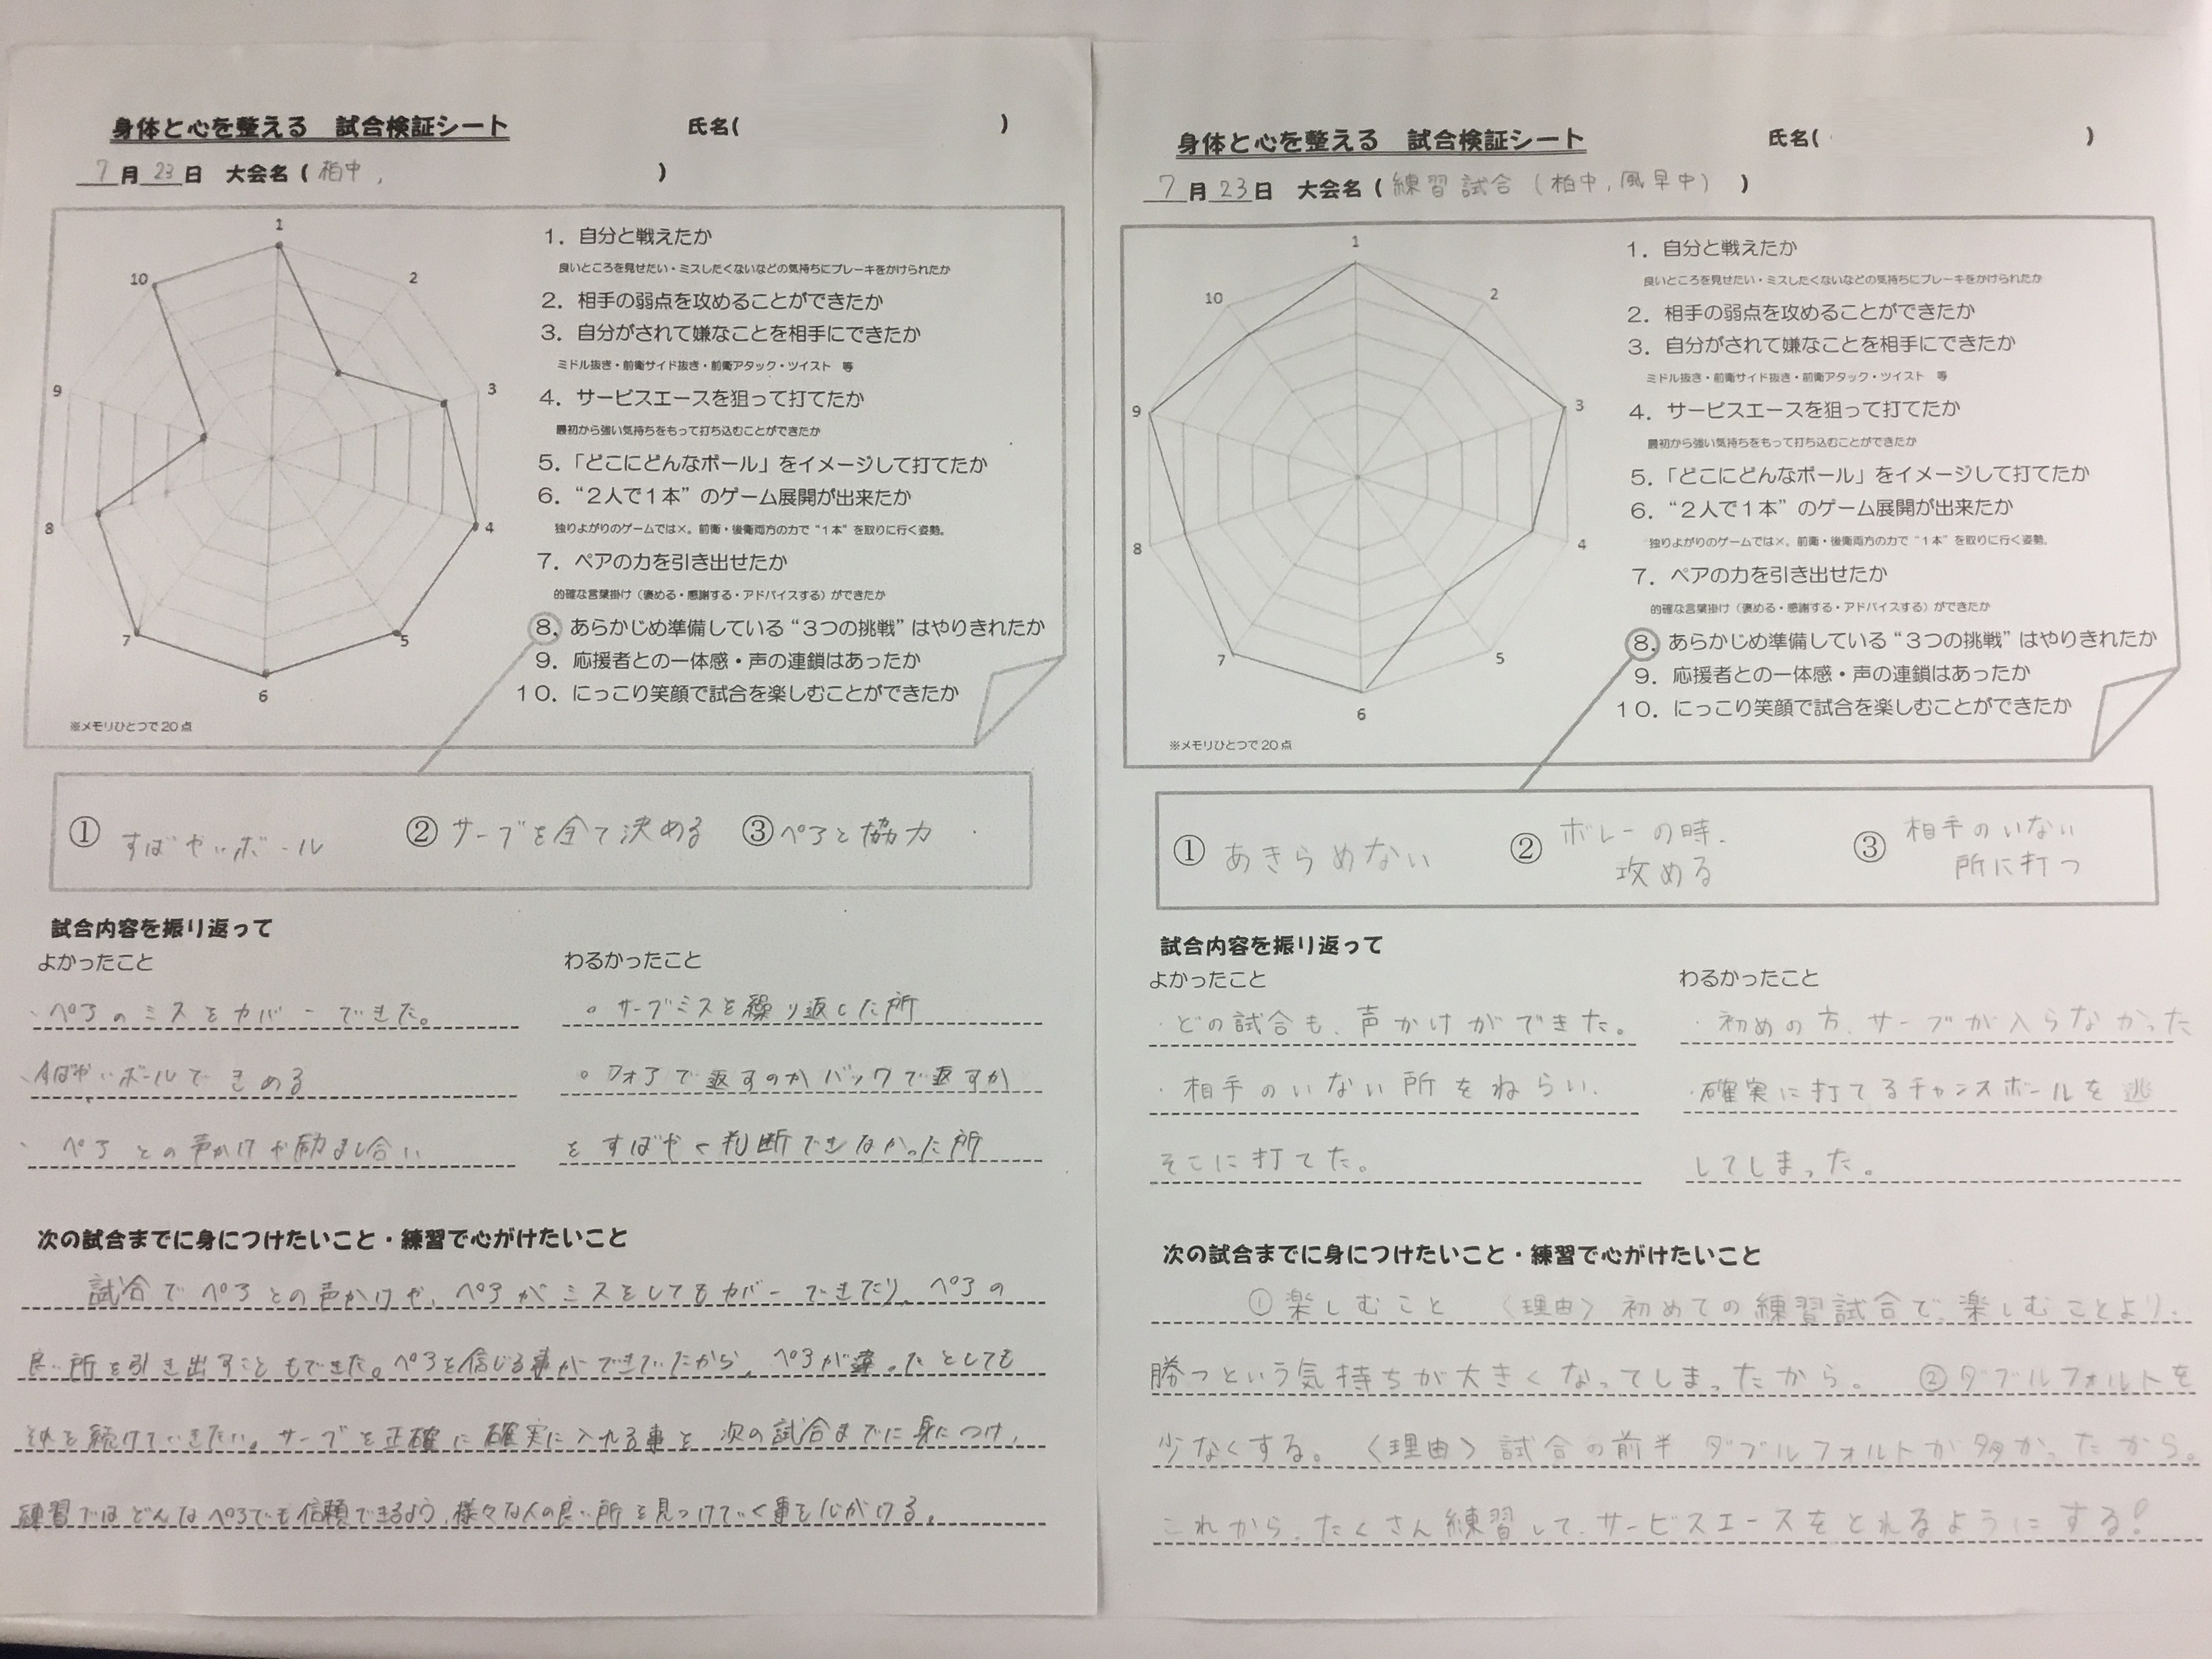 身体と心を整える 試合検証シート 氏名( )
7月23日 大会名(柏中, )
1
2
3
4
5
6
7
8
9
10
※メモリひとつで20点
1. 自分と戦えたか
良いところを見せたい・ミスしたくないなどの気持ちにブレーキをかけられたか
2. 相手の弱点を攻めることができたか
3. 自分がされて嫌なことを相手にできたか
ミドル抜き・前衛サイド抜き・前衛アタック・ツイスト 等
4. サービスエースを狙って打てたか
最初から強い気持ちをもって打ち込むことができたか
5.「どこにどんなボール」をイメージして打てたか
6. “2人で1本”のゲーム展開が出来たか
独りよがりのゲームでは×。前衛・後衛両方の力で“1本”を取りに行く姿勢。
7. ペアの力を引き出せたか
的確な言葉掛け(褒める・感謝する・アドバイスする)ができたか
8. あらかじめ準備している“3つの挑戦”はやりきれたか
9. 応援者との一体感・声の連鎖はあったか
10. にっこり笑顔で試合を楽しむことができたか
① すばやいボール ② サーブを全て決める ③ ペアと協力
試合内容を振り返って
よかったこと
・ペアのミスをカバーできた。
・すばやいボールできめる
・ペアとの声かけや励まし合い
わるかったこと
。サーブミスを繰り返した所
。フォアで返すのかバックで返すか
をすばやく判断できなかった所
次の試合までに身につけたいこと・練習で心がけたいこと
試合でペアとの声かけや、ペアがミスをしてもカバーできたり、ペアの
良い所を引き出すこともできた。ペアを信じる事ができていたから、ペアが違ったとしても
それを続けていきたい。サーブを正確に確実に入れる事を次の試合までに身につけ、
練習ではどんなペアでも信頼できるよう、様々な人の良い所を見つけていく事を心がける。
身体と心を整える 試合検証シート 氏名( )
7月23日 大会名(練習試合(柏中,風早中))
1
2
3
4
5
6
7
8
9
10
※メモリひとつで20点
1. 自分と戦えたか
良いところを見せたい・ミスしたくないなどの気持ちにブレーキをかけられたか
2. 相手の弱点を攻めることができたか
3. 自分がされて嫌なことを相手にできたか
ミドル抜き・前衛サイド抜き・前衛アタック・ツイスト 等
4. サービスエースを狙って打てたか
最初から強い気持ちをもって打ち込むことができたか
5.「どこにどんなボール」をイメージして打てたか
6. “2人で1本”のゲーム展開が出来たか
独りよがりのゲームでは×。前衛・後衛両方の力で“1本”を取りに行く姿勢。
7. ペアの力を引き出せたか
的確な言葉掛け(褒める・感謝する・アドバイスする)ができたか
8. あらかじめ準備している“3つの挑戦”はやりきれたか
9. 応援者との一体感・声の連鎖はあったか
10. にっこり笑顔で試合を楽しむことができたか
① あきらめない ② ボレーの時、 ③ 相手のいない
攻める 所に打つ
試合内容を振り返って
よかったこと
・どの試合も、声かけができた。
・相手のいない所をねらい、
そこに打てた。
わるかったこと
・初めの方、サーブが入らなかった
・確実に打てるチャンスボールを逃
してしまった。
次の試合までに身につけたいこと・練習で心がけたいこと
①楽しむこと 〈理由〉初めての練習試合で、楽しむことより、
勝つという気持ちが大きくなってしまったから。 ②ダブルフォルトを
少なくする。〈理由〉試合の前半 ダブルフォルトが多かったから。
これから、たくさん練習して、サービスエースをとれるようにする!